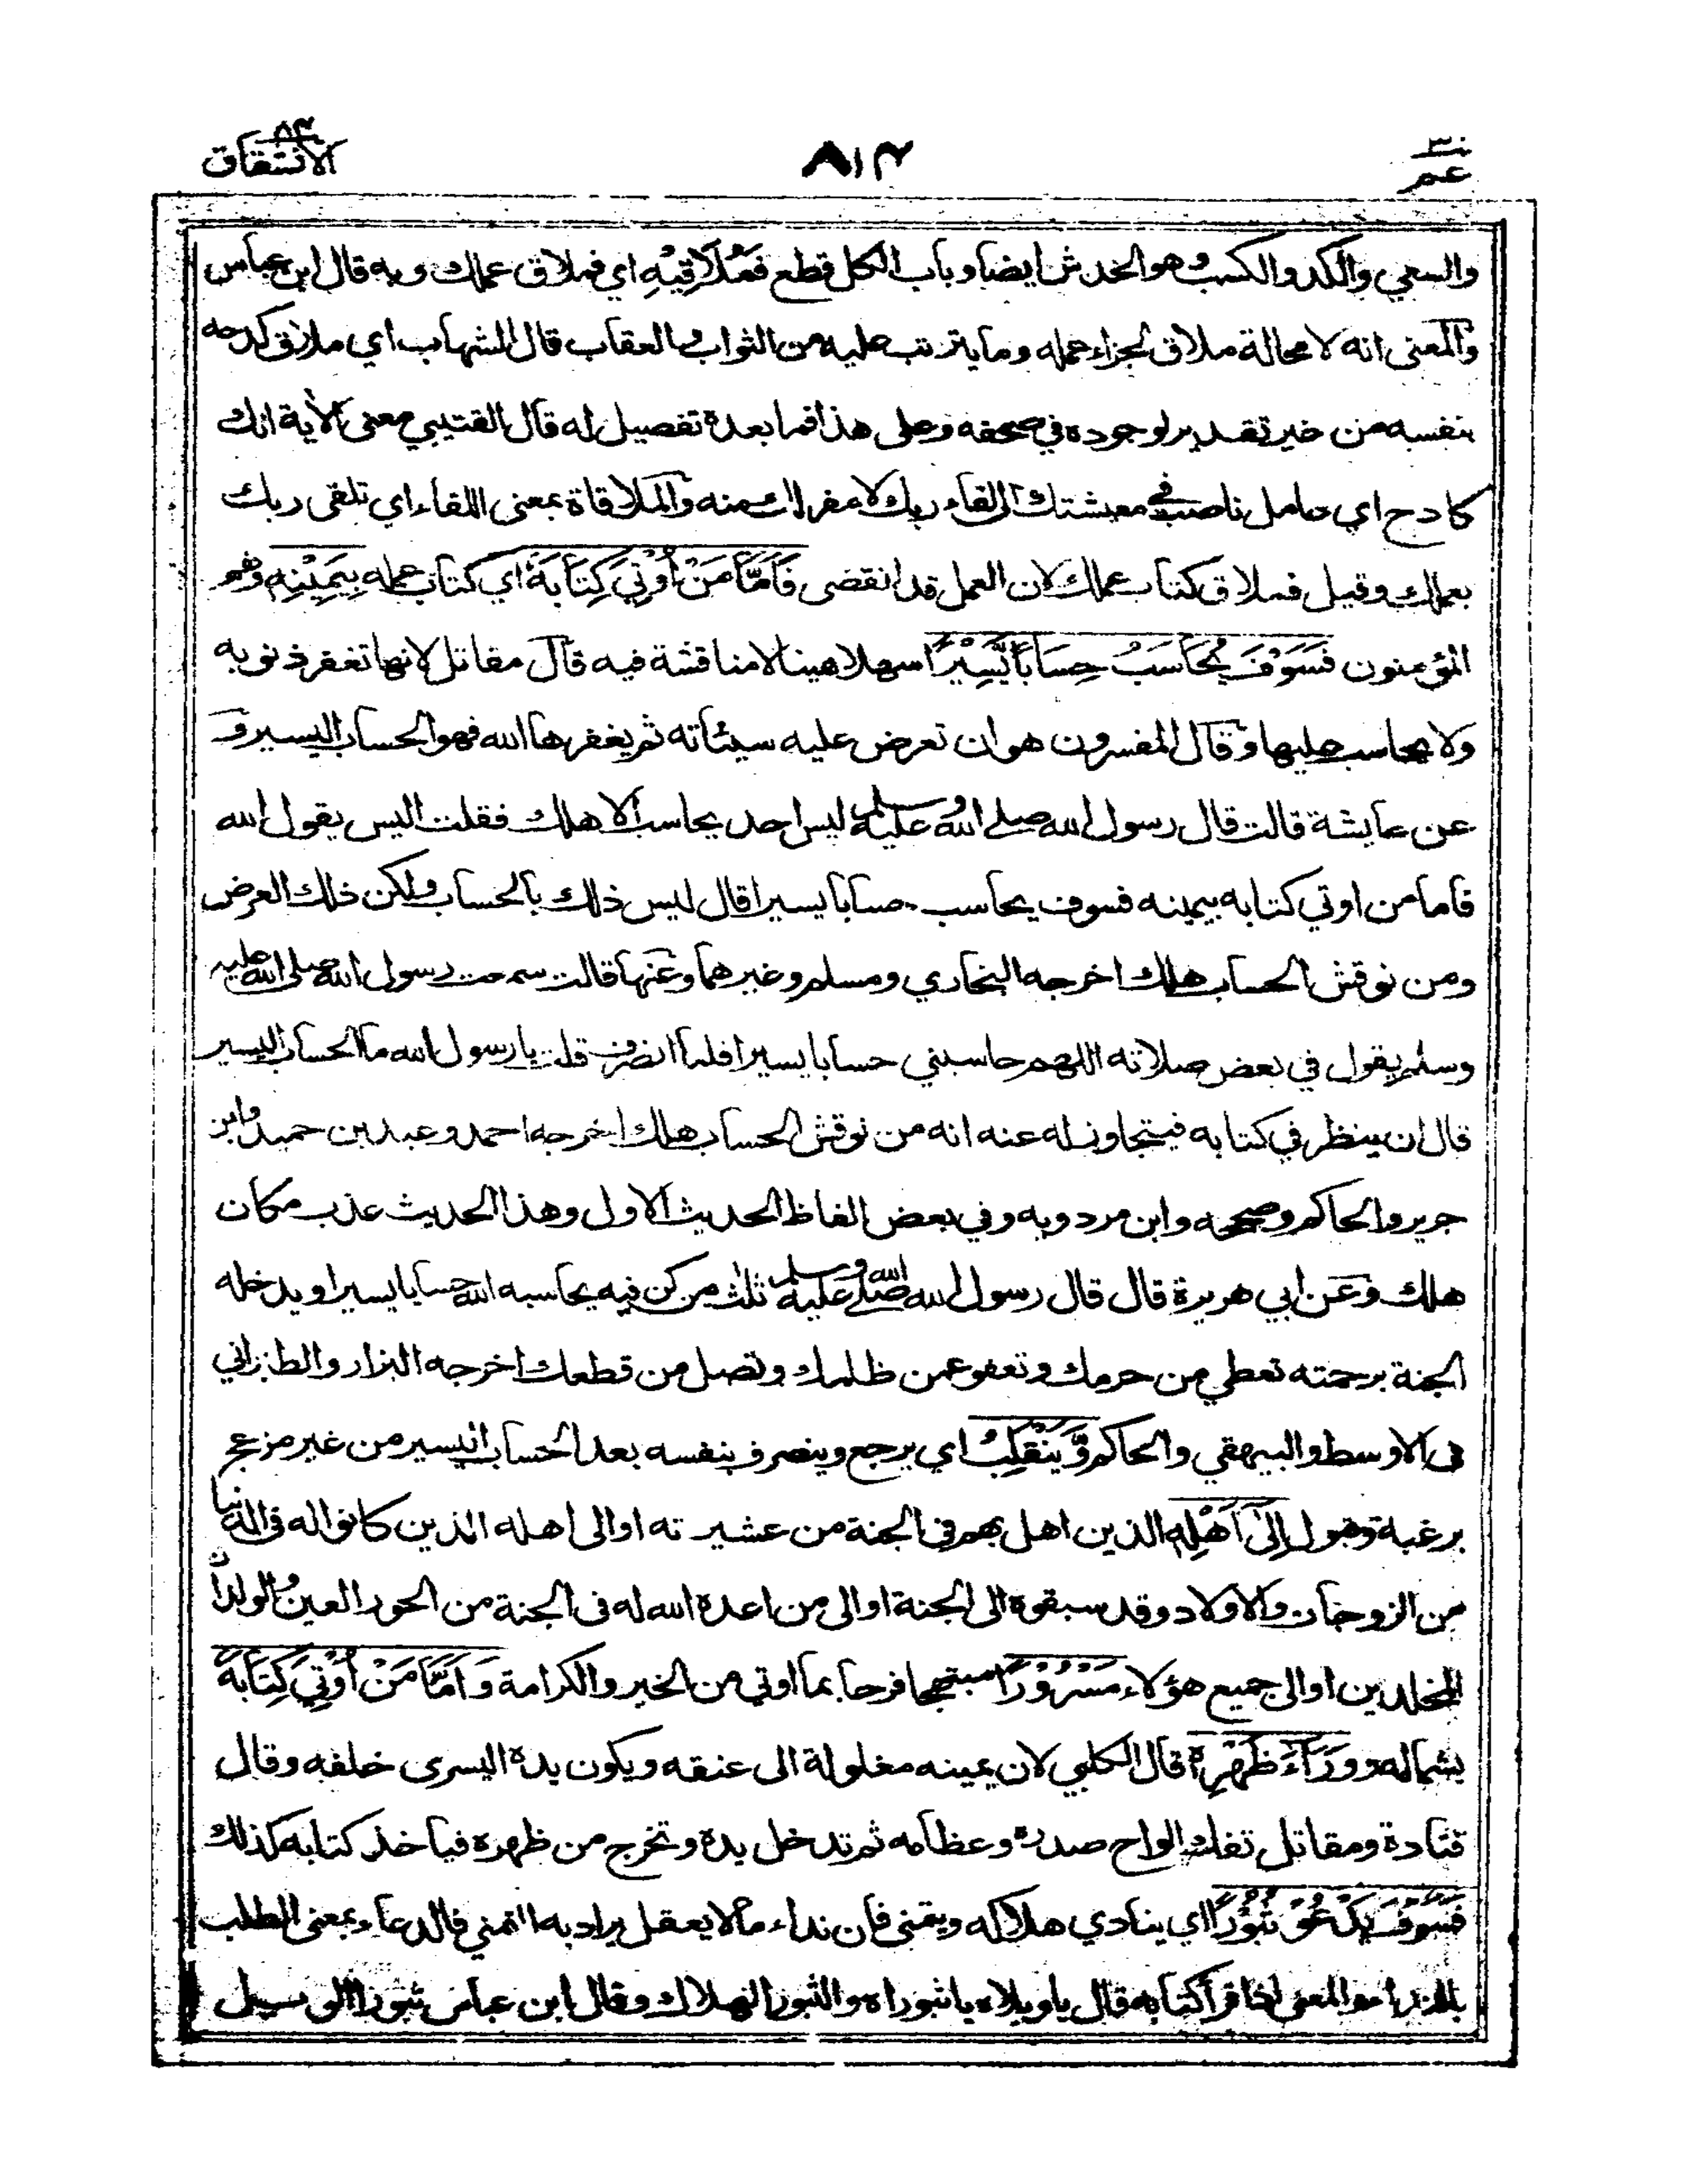 ٣٠
عم
٨١٤
٨٤
الانشقاق
والسعي والكد والكسب وهو الخدش ايضا وباب الكل قطع فَمُلَاقِيْهِ اي فملاق عملك وبه قال ابن عباس
والمعنى انه لا محالة ملاق لجزاء عمله وما يترتب عليه من الثواب والعقاب قال الشهاب اي ملاق كدحه
بنفسه من غير تقدير لوجوده في صحفه وعلى هذا فما بعده تفصيل له قال القتيبي معنى الأية انك
كادح اي عامل ناصب في معيشتك الى لقاء ربك لا مفر لك منه والملاقاة بمعنى اللقاء اي تلقى ربك
بعملك وقيل فملاق كتاب عملك لان العمل قد انقضى فَأَمَّا مَنْ أُوْتِيَ كِتَابَهٗ اي كتاب عمله بِيَمِيْنِهٖ وهو
المؤمنون فَسَوْفَ يُحَاسَبُ حِسَابًا يَّسِيْرًا سهلا هينا لا مناقشة فيه قال مقاتل لانها تغفر ذنوبه
ولا يحاسب عليها وقال المفسرون هو ان تعرض عليه سيئاته ثم يغفرها الله فهو الحساب اليسير و
عن عايشة قالت قال رسول الله صلى الله عليه وسلم ليس احد يحاسب الا هلك فقلت اليس يقول الله
فاما من اوتي كتابه بيمينه فسوف يحاسب حسابا يسيرا قال ليس ذلك بالحساب ولكن ذلك العرض
ومن نوقش الحساب هلك اخرجه البخاري ومسلم وغيرهما وعنها قالت سمعت رسول الله صلى الله عليه
وسلم يقول في بعض صلاته اللهم حاسبني حسابا يسيرا فلما انصرف قلت يا رسول الله ما الحساب اليسير
قال ان ينظر في كتابه فيتجاوز له عنه انه من نوقش الحساب هلك اخرجه احمد وعبد بن حميد وابن
جرير والحاكم وصححه وابن مردويه وفي بعض الفاظ الحديث الاول وهذا الحديث عذب مكان
هلك وعن ابي هريرة قال قال رسول الله صلى الله عليه وسلم ثلث من كن فيه يحاسبه الله حسابا يسيرا ويدخله
الجنة برحمته تعطي من حرمك وتعفو عمن ظلمك وتصل من قطعك اخرجه البزار والطبراني
في الاوسط والبيهقي والحاكم وَّيَنْقَلِبُ اي يرجع وينصرف بنفسه بعد الحساب اليسير من غير مزعج
برغبة وقبول إِلٰى أَهْلِهٖ الذين اهل بهم في الجنة من عشيرته او الى اهله الذين كانوا له في الدنيا
من الزوجات والاولاد وقد سبقوه الى الجنة او الى من اعده الله له في الجنة من الحور العين والولدان
المخلدين او الى جميع هؤلاء مَسْرُوْرًا مبتهجا فرحا بما اوتي من الخير والكرامة وَأَمَّا مَنْ أُوْتِيَ كِتَابَهٗ
بشماله وَرَآءَ ظَهْرِهٖ قال الكلبي لان يمينه مغلولة الى عنقه ويكون يده اليسرى خلفه وقال
قتادة ومقاتل تفك الواح صدره وعظامه ثم تدخل يده وتخرج من ظهره فيأخذ كتابه كذلك
فَسَوْفَ يَدْعُوْ ثُبُوْرًا اي ينادي هلاكه ويتمنى فان نداء ما لا يعقل يراد به التمني فالدعاء بمعنى الطلب
بالنداء والمعنى اذا قرأ كتابه قال يا ويلاه يا ثبوراه والثبور الهلاك وقال ابن عباس ثبورا الويل